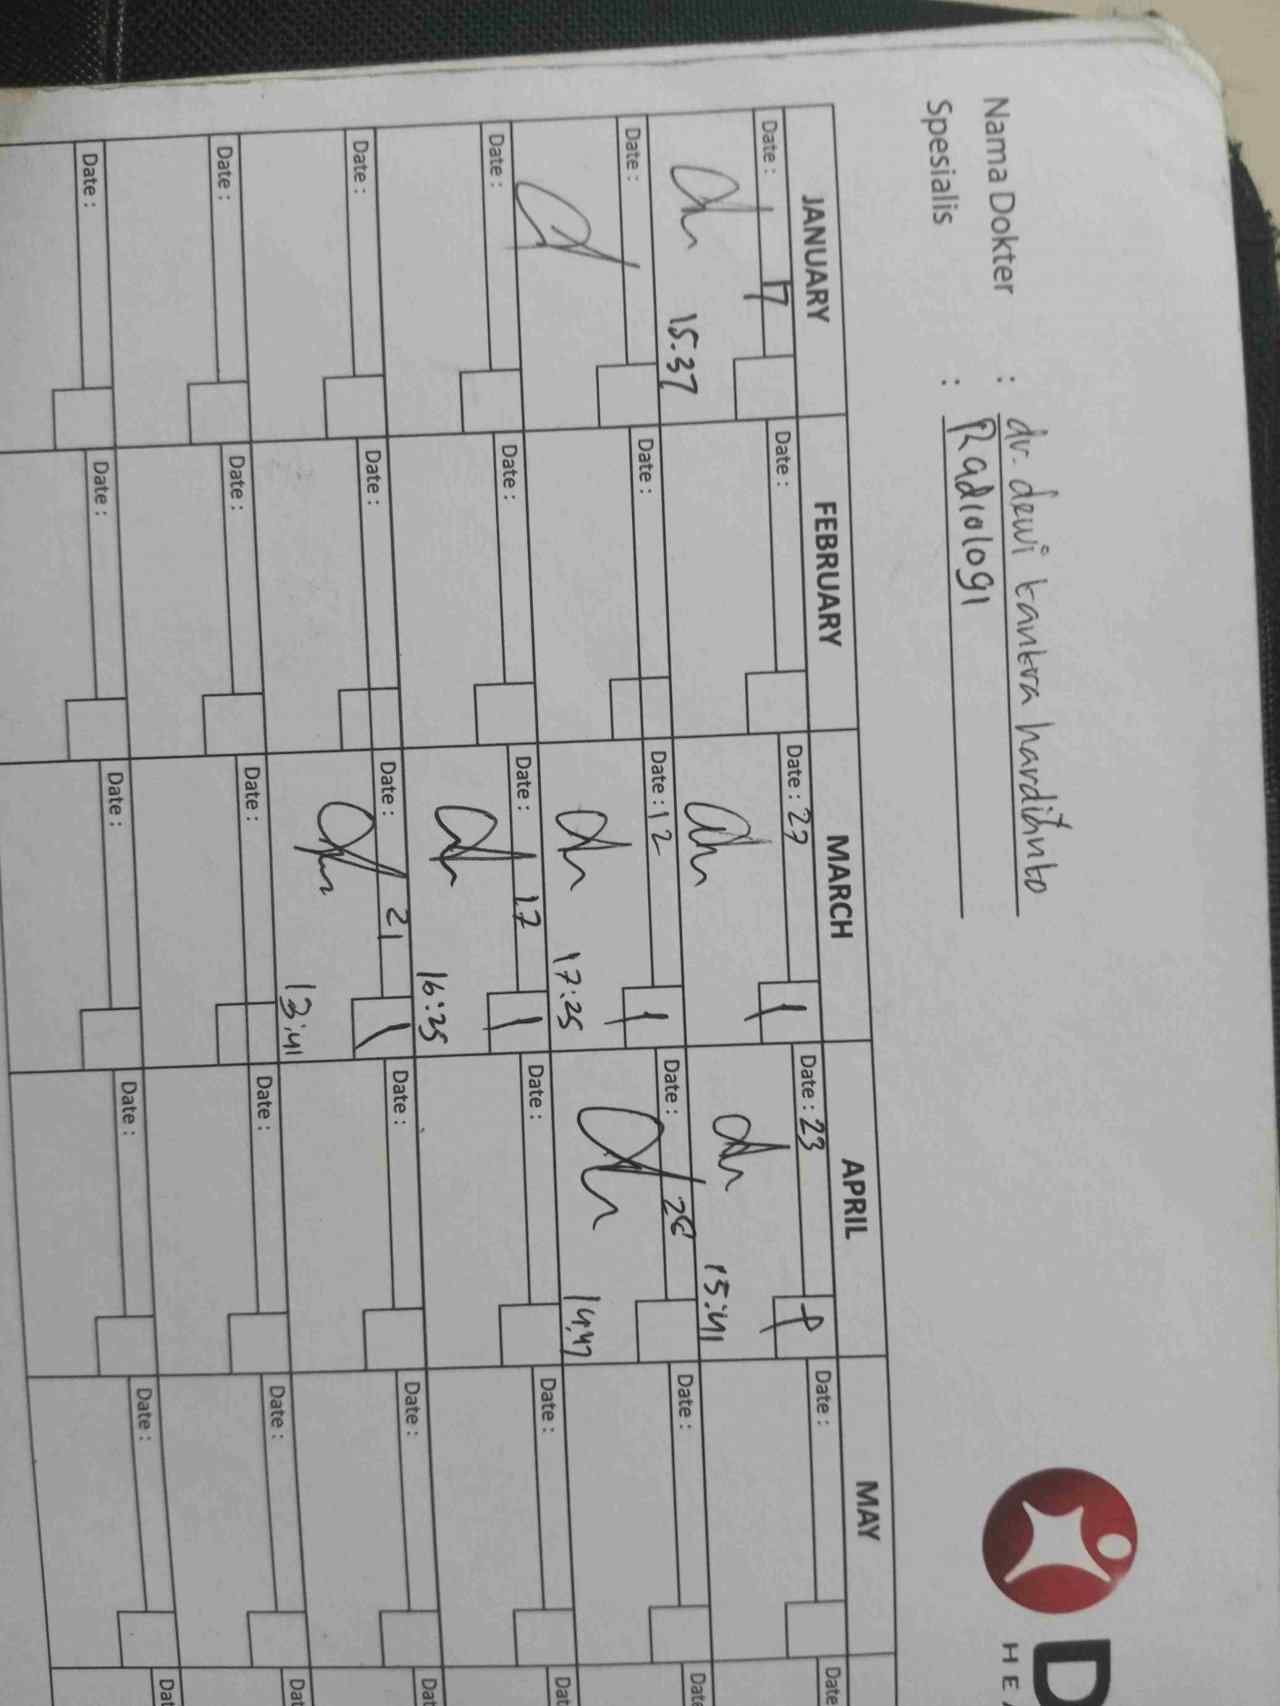 Nama Dokter : dr. dewi tantra hardiyanto
Spesialis : Radiologi
D
HEA
JANUARY FEBRUARY MARCH APRIL MAY
Date : 17 Date : Date : 27 Date : 23 Date : Date
15.37 15:41
Date : Date : Date : 12 Date : 26 Date : Date
17:25 14,47
Date : Date : Date : 17 Date : Date : Dat
16:25
Date : Date : Date : 21 Date : Date : Dat
13:41
Date : Date : Date : Date : Date : Dat
Date : Date : Date : Date : Date : Dat